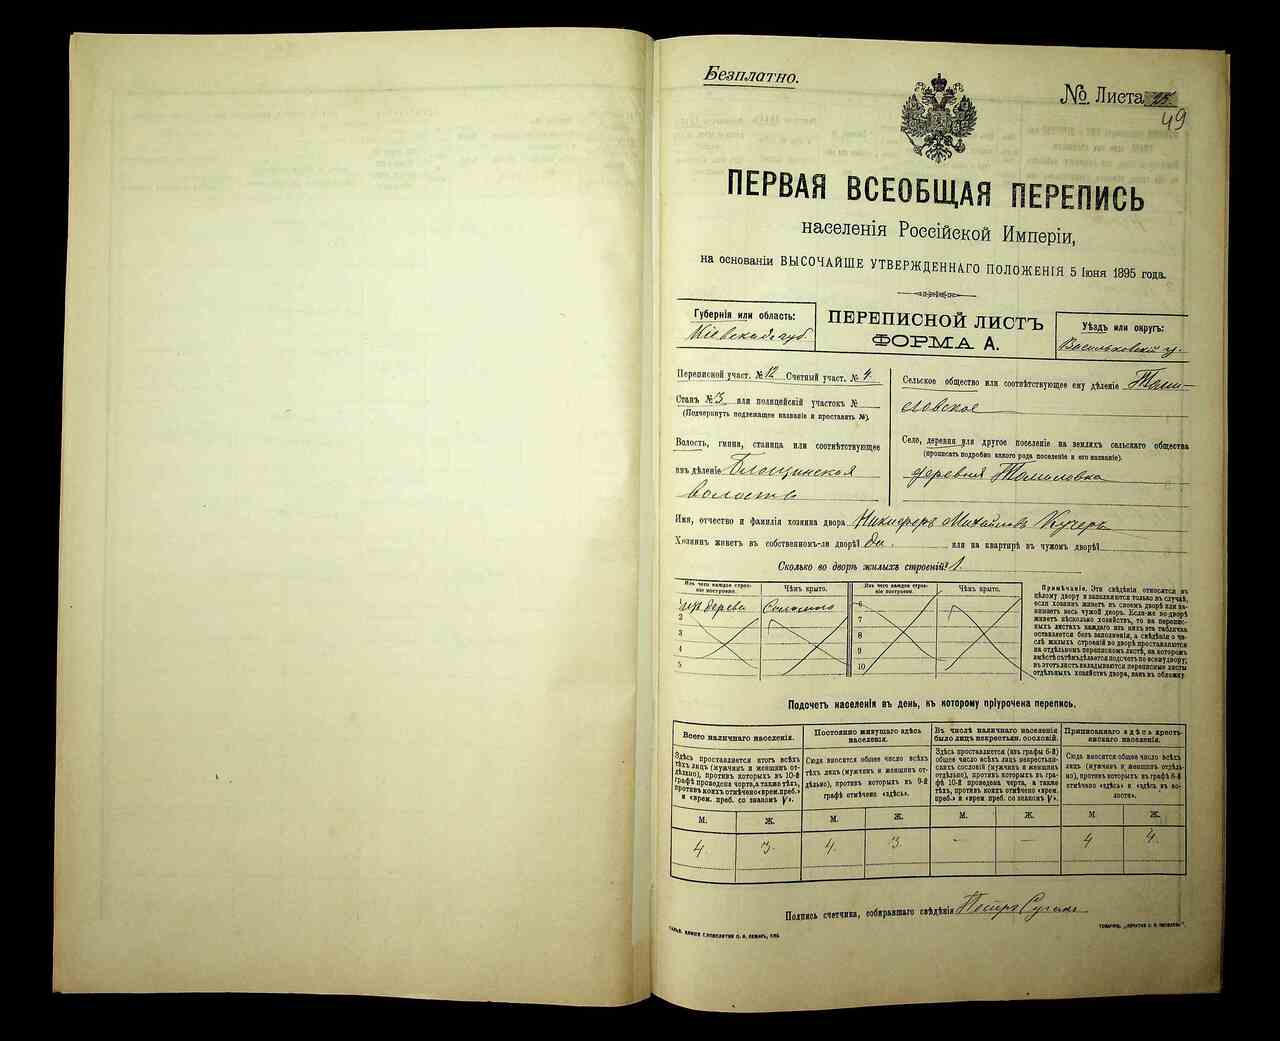 Безплатно.
№ Листа 25.
49
ПЕРВАЯ ВСЕОБЩАЯ ПЕРЕПИСЬ
населенія Россійской Имперіи,
на основаніи ВЫСОЧАЙШЕ УТВЕРЖДЕННАГО ПОЛОЖЕНІЯ 5 Іюня 1895 года.
Губернія или область:
Кіевская губ.
ПЕРЕПИСНОЙ ЛИСТЪ
ФОРМА А.
Уѣздъ или округъ:
Васильковскій у.
Переписной участ. № 12 Счетный участ. № 4.
Станъ № 3 или полицейскій участокъ №
(Подчеркнуть подлежащее названіе и проставить №).
Волость, гмина, станица или соотвѣтствующее
имъ дѣленіе Блощинская
волость
Сельское общество или соотвѣтствующее ему дѣленіе Томи-
ловское
Село, деревня или другое поселеніе на земляхъ сельскаго общества
(прописать подробно какого рода поселеніе и его названіе).
деревня Томиловка
Имя, отчество и фамилія хозяина двора Никифоръ Михайловъ Кучеръ
Хозяинъ живетъ въ собственномъ-ли дворѣ? Да. или на квартирѣ въ чужомъ дворѣ?
Сколько во дворѣ жилыхъ строеній? 1.
Изъ чего каждое строе-
ніе построено.
Чѣмъ крыто.
Изъ чего каждое строе-
ніе построено.
Чѣмъ крыто.
1 изъ дерева Соломою
2
3
4
5
6
7
8
9
10
Примѣчаніе. Эти свѣдѣнія относятся къ
цѣлому двору и заполняются только въ случаѣ,
если хозяинъ живетъ въ своемъ дворѣ или за-
нимаетъ весь чужой дворъ. Если-же во дворѣ
живетъ нѣсколько хозяйствъ, то на перепис-
ныхъ листахъ каждаго изъ нихъ эта табличка
оставляется безъ заполненія, а свѣдѣнія о чи-
слѣ жилыхъ строеній во дворѣ проставляются
на отдѣльномъ переписномъ листѣ, на которомъ
вмѣстѣ съ тѣмъ дѣлается подсчетъ по всему двору;
въ этотъ листъ вкладываются переписные листы
отдѣльныхъ хозяйствъ двора, какъ въ обложку.
Подсчетъ населенія въ день, къ которому пріурочена перепись.
Всего наличнаго населенія.
Постоянно живущаго здѣсь
населенія.
Въ числѣ наличнаго населенія
было лицъ некрестьян. сословій.
Приписаннаго здѣсь кресть-
янскаго населенія.
Здѣсь проставляется итогъ всѣхъ
тѣхъ лицъ (мужчинъ и женщинъ от-
дѣльно), противъ которыхъ въ 10-й
графѣ проведена черта, а также тѣхъ,
противъ коихъ отмѣчено «врем. преб.»
и «врем. преб. со знакомъ V».
Сюда вносится общее число всѣхъ
тѣхъ лицъ (мужчинъ и женщинъ от-
дѣльно), противъ которыхъ въ 9-й
графѣ отмѣчено «здѣсь».
Здѣсь проставляется (изъ графы 6-й)
общее число всѣхъ лицъ некрестьян-
скихъ сословій (мужчинъ и женщинъ
отдѣльно), противъ которыхъ въ гра-
фѣ 10-й проведена черта, а также
тѣхъ, противъ коихъ отмѣчено «врем.
преб.» и «врем. преб. со знакомъ V».
Сюда вносится общее число всѣхъ
лицъ (мужчинъ и женщинъ отдѣль-
но), противъ которыхъ въ графѣ 8-й
отмѣчено «здѣсь» и «здѣсь въ во-
лости».
М. Ж. М. Ж. М. Ж. М. Ж.
4. 3. 4. 3. — — 4 4.
Подпись счетчика, собиравшаго свѣдѣнія Петръ